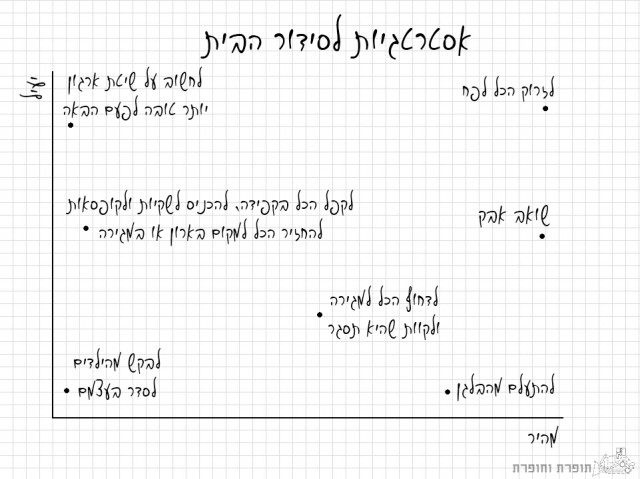 אסטרטגיות לסידור הבית
יעיל
לחשוב על שיטת ארגון
יותר טובה לפעם הבאה
לזרוק הכל לפח
לקפל הכל בקפידה, להכניס לשקיות ולקופסאות
להחזיר הכל למקום בארון או במגירה
שואב אבק
לדחוף הכל למגירה
ולקוות שהיא תסגר
לבקש מהילדים
לסדר בעצמם
להתעלם מהבלגן
מהיר
תופרת וחופרת